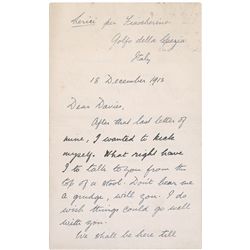 Lerici per Fiascherino
Golfo della Spezia
Italy
18 December 1913
Dear Davies,
After that last letter of
mine, I wanted to kick
myself. What right have
I to talk to you from the
top of a stool. Don't bear me
a grudge, will you. I do
wish things could go well
with you.
We shall be here till